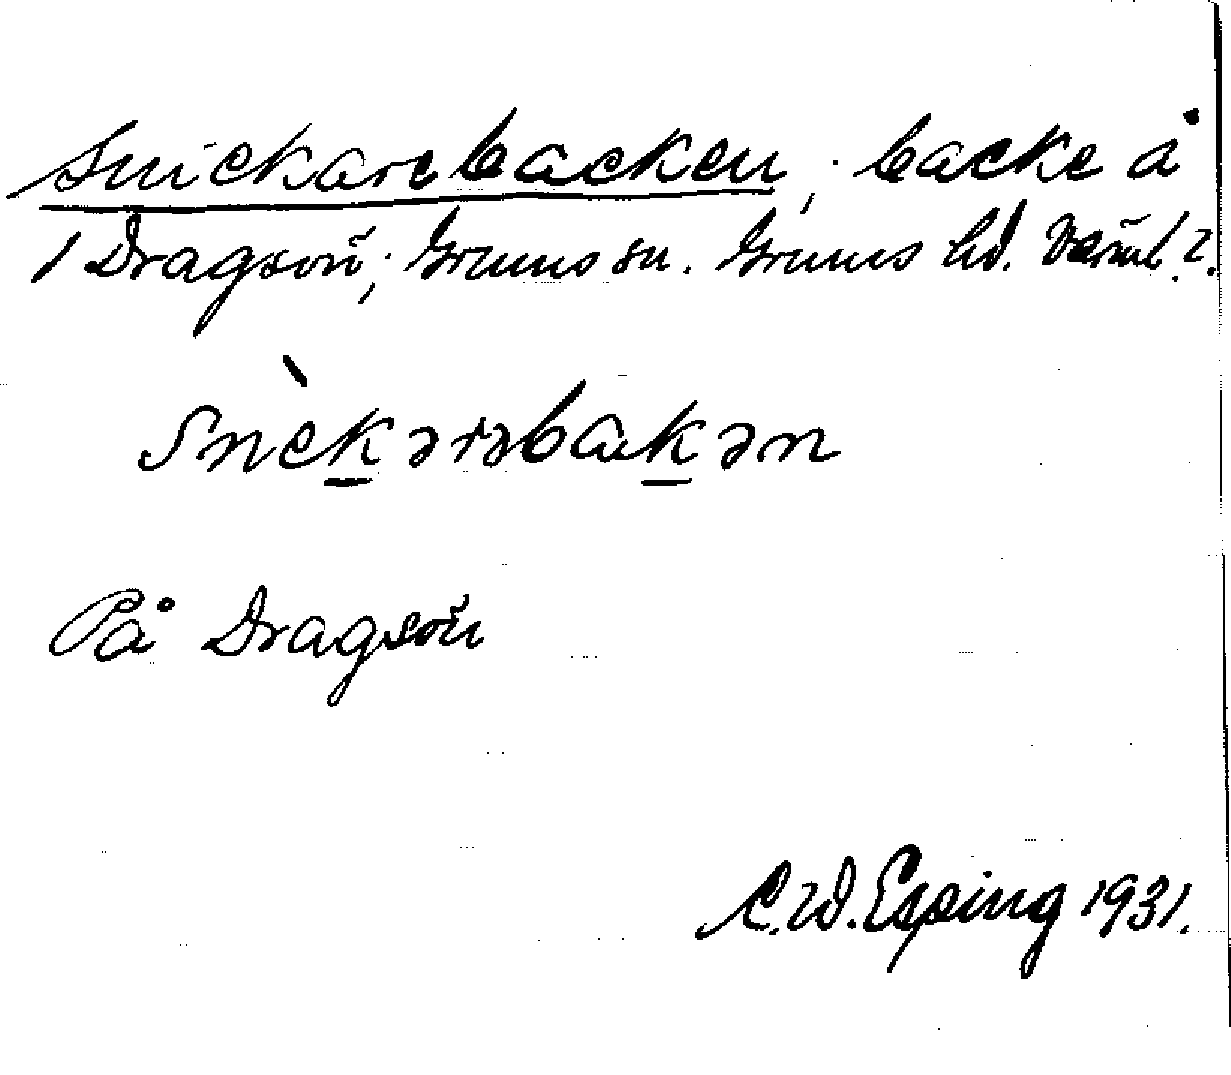 Snickarebacken, backe å
/ Dragsön, Grums sn. Grums hd. Värml. l.
Snὲkərəbakən
På Dragsön
C. W. Esping 1931.